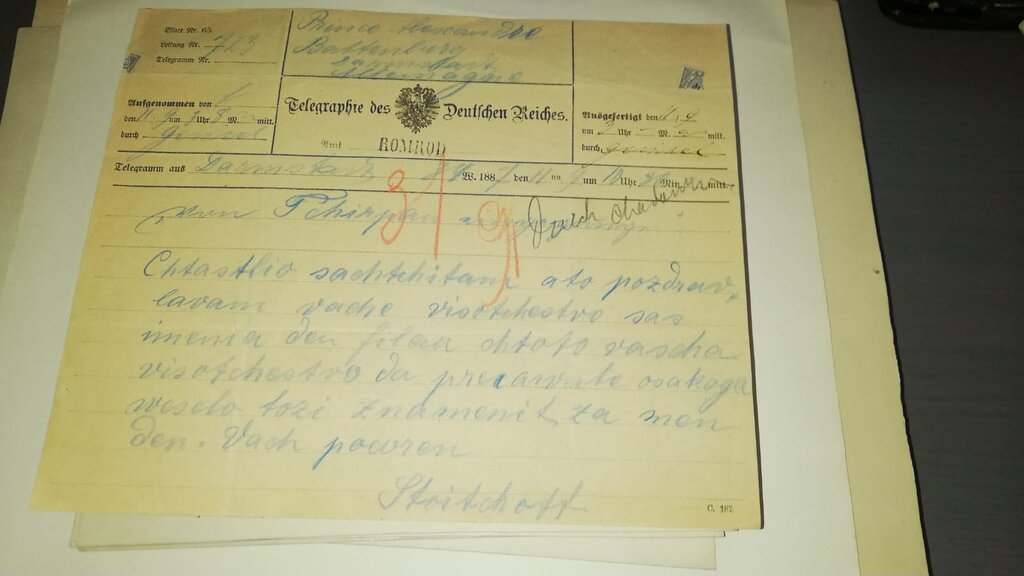 Blatt Nr. 65.
Leitung Nr. 723
Telegramm Nr.
Prince Alexandre
Battenburg
Darmstadt
Allemagne
Aufgenommen von
den 11 Uhr 8 M. mitt.
durch
Telegraphie des Deutschen Reiches.
Amt ROMROD
Ausgefertigt den
um Uhr M. mitt.
durch
Telegramm aus Darmstadt W. 188 7 den 11 ten 9 um 10 Uhr Min. mitt.
3/9
von Tchirpan
Durch
Chtastlio sachtchitam ato pozdrav„
lavam vache visotchestvo sas
imenia den jilaa chtoto vascha
visotchestvo da precarvate osakoga
weselo tozi znamenit za men
den. Vach powren
Stoitchoff
C. 187.